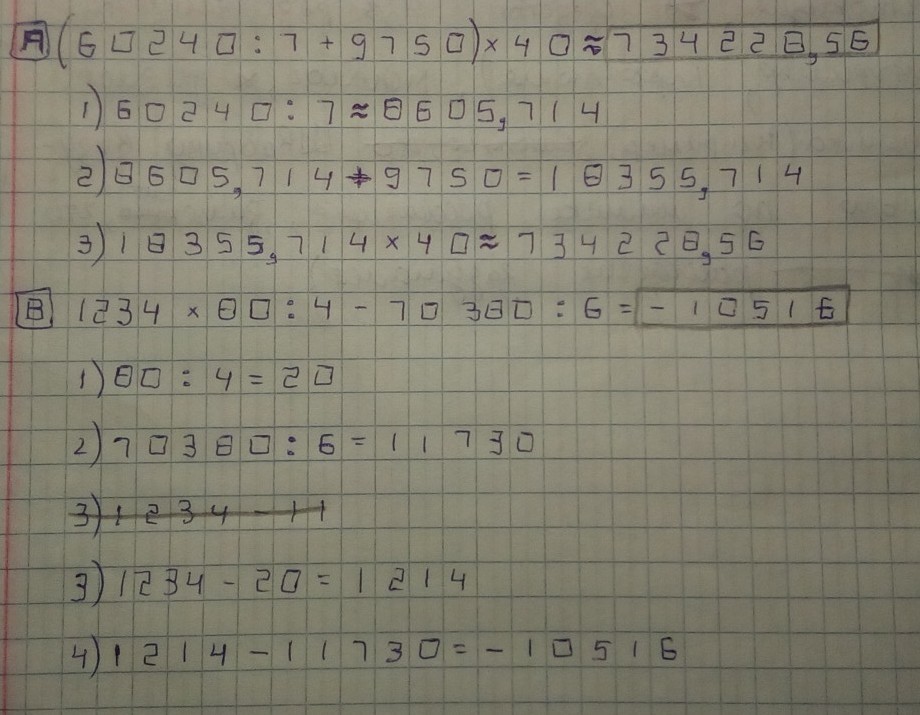 A (60240 : 7 + 9750) × 40 ≈ 734228,56
1) 60240 : 7 ≈ 8605,714
2) 8605,714 + 9750 = 18355,714
3) 18355,714 × 40 ≈ 734228,56
B 1234 × 80 : 4 - 70 380 : 6 = -10516
1) 80 : 4 = 20
2) 70380 : 6 = 11730
3) 1234 - 11
3) 1234 - 20 = 1214
4) 1214 - 11730 = -10516